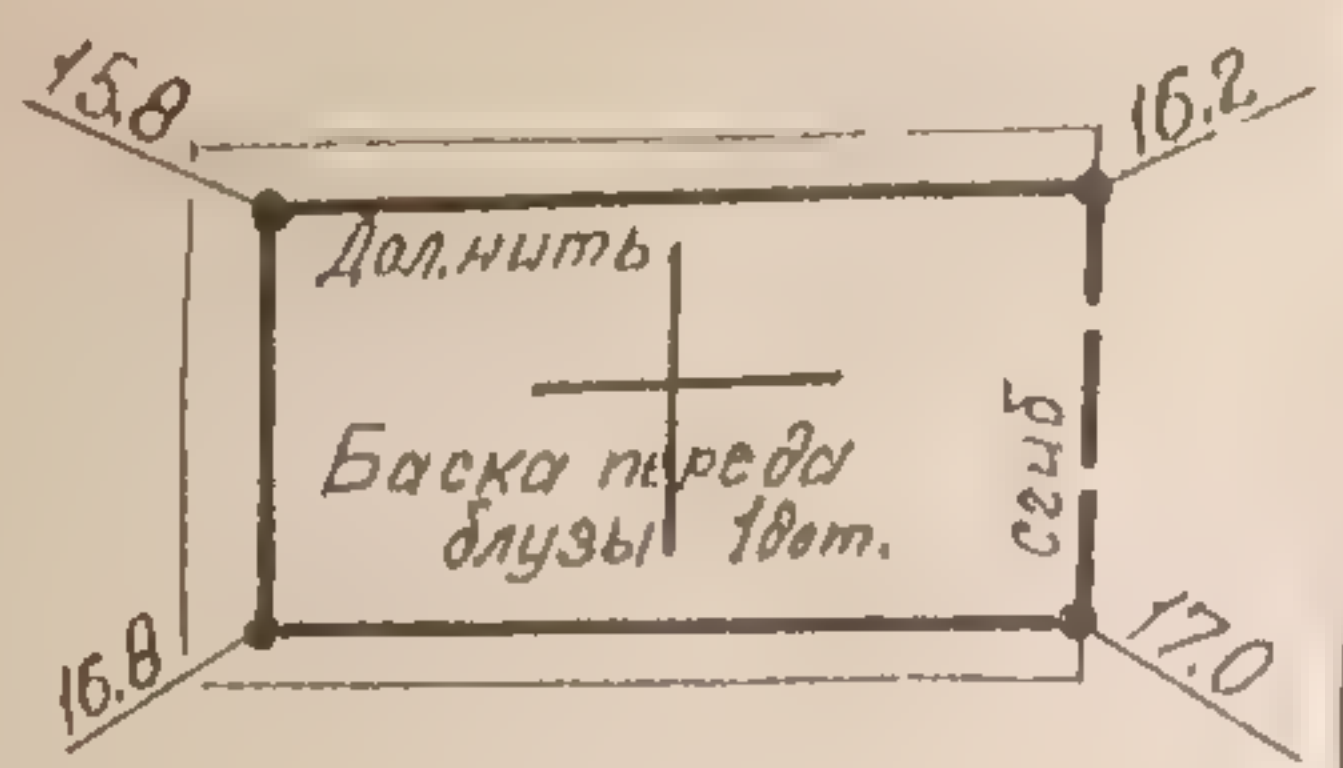 15.8
16.2
Дол.нить
Баска переда
блузы 1дет.
сгиб
16.8
17.0